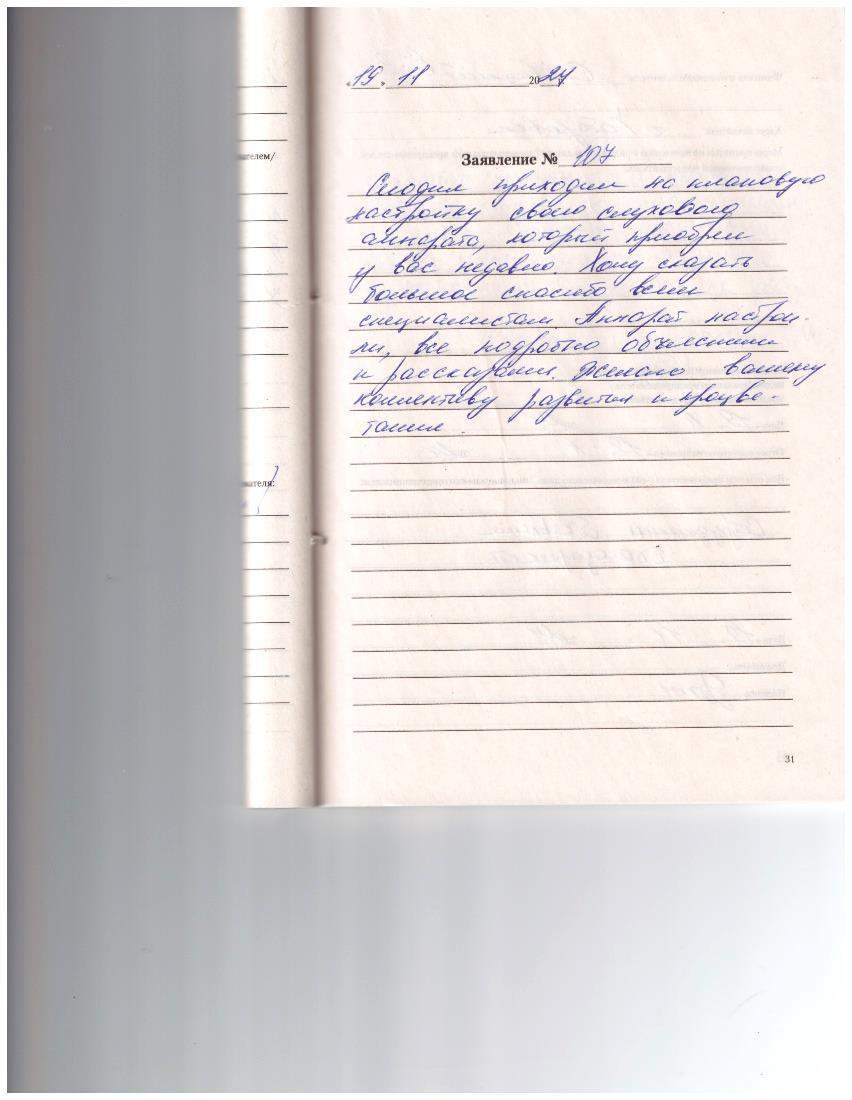 19. 11 2024
Заявление № 107
Сегодня приходил на плановую
настройку своего слухового
аппарата, который приобрел
у вас недавно. Хочу сказать
большое спасибо всем
специалистам. Аппарат настрои-
ли, все подробно объяснили
и рассказали. Желаю вашему
коллективу развития и процве-
тания.
31
ателем/
ателя: